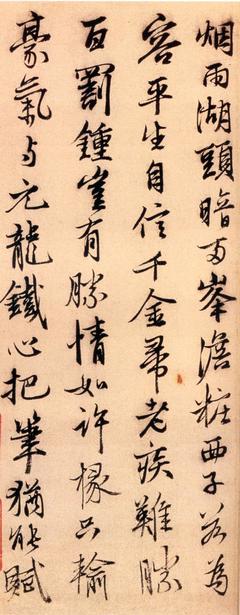 烟雨湖頭暗两峯澹粧西子若為
容平生自信千金帚老疾難勝
百罰鍾豈有勝情如許掾只輸
豪氣与元龍鐵心把筆猶能賦